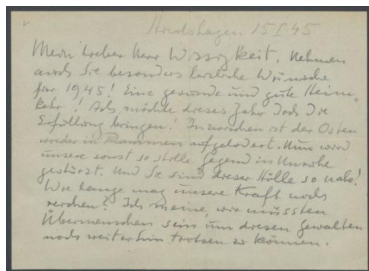 15.I.45
Mein lieber Herr Wissozkeit. Nehmen
auch Sie besonders herzliche Wünsche
für 1945! Eine gesunde und gute Heim-
kehr! Ach möchte dieses Jahr doch die
Erfüllung bringen! Inzwischen ist der Osten
wieder in Flammen aufgelodert. Nun wird
unsere sonst so stille Gegend in Unruhe
gestürzt. Und Sie sind dieser Hölle so nahe!
Wie lange mag unsere Kraft noch
reichen? Ich meine, wir müssten
Übermenschen sein um diesen Gewalten
noch weiterhin trotzen zu können.